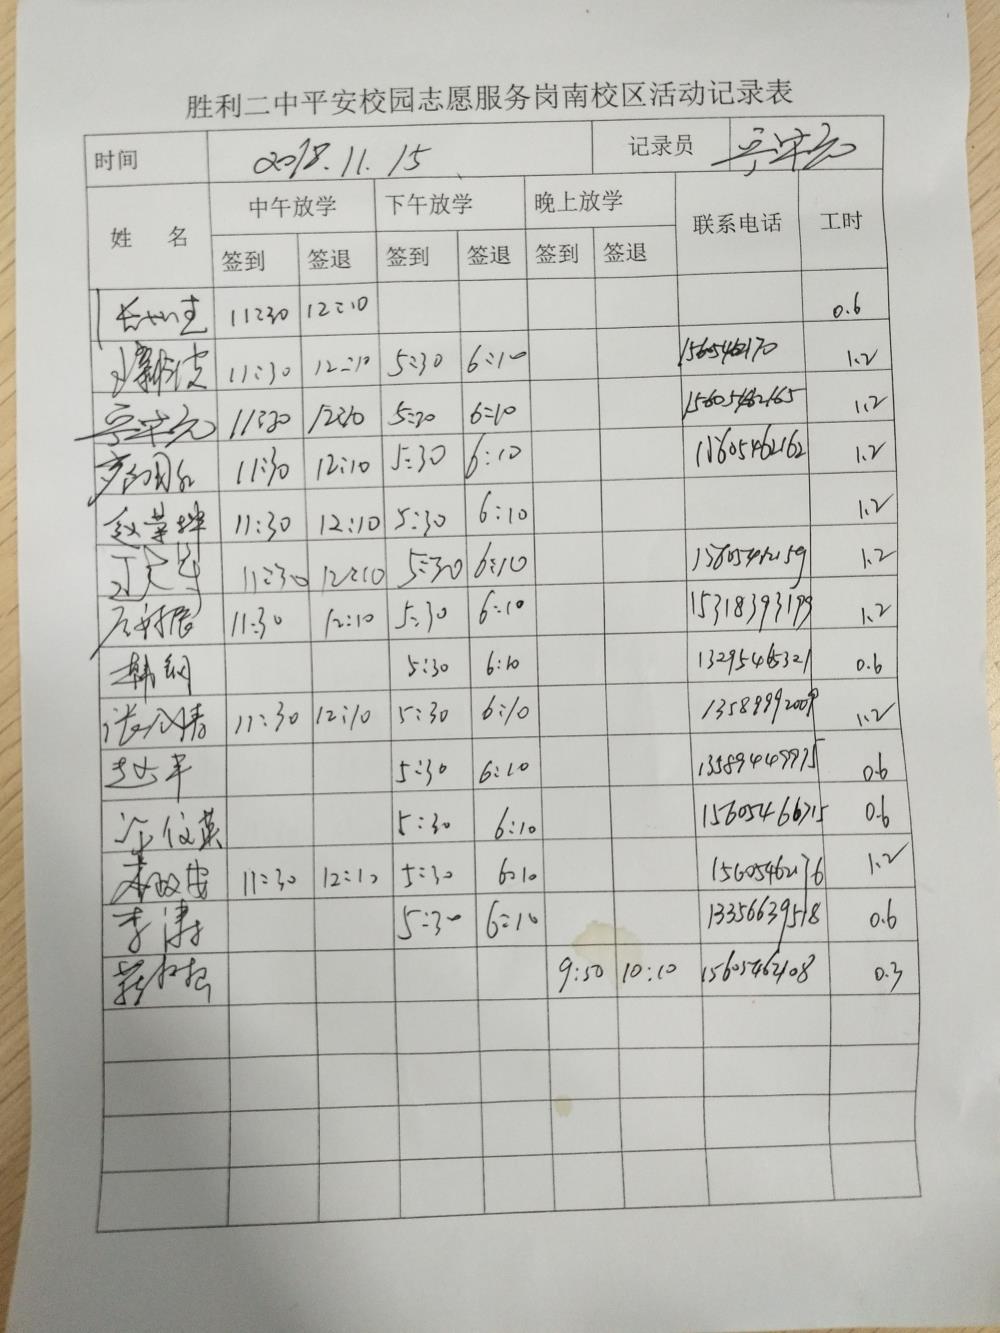 胜利二中平安校园志愿服务岗南校区活动记录表
时间 2018.11.15 记录员
姓 名 中午放学 下午放学 晚上放学 联系电话 工时
签到 签退 签到 签退 签到 签退
11:30 12:10 0.6
11:30 12:10 5:30 6:10 1.2
11:30 12:10 5:30 6:10 15605462165 1.2
11:30 12:10 5:30 6:10 15605462162 1.2
赵荣 11:30 12:10 5:30 6:10 1.2
11:30 12:10 5:30 6:10 15605462159 1.2
11:30 12:10 5:30 6:10 15318393199 1.2
韩钢 5:30 6:10 13295465321 0.6
张 11:30 12:10 5:30 6:10 13589992009 1.2
5:30 6:10 13589449975 0.6
5:30 6:10 15605466715 0.6
11:30 12:10 5:30 6:10 15605462176 1.2
李涛 5:30 6:10 13356639518 0.6
9:50 10:10 15605462108 0.3